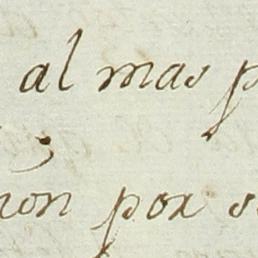 al mas p
non por s